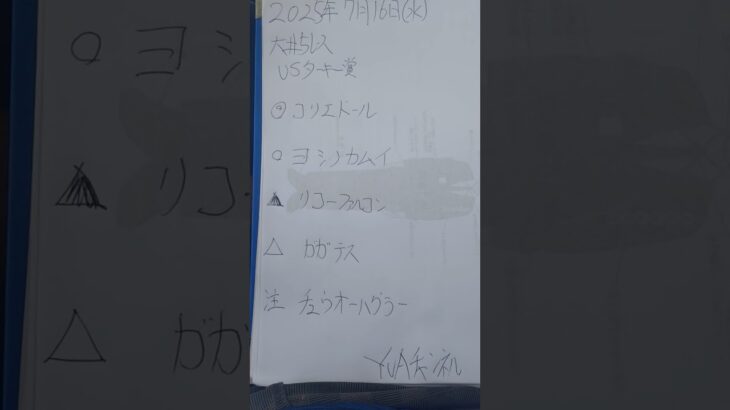 2025年7月16日(水)
大井5レス
USターキー賞
◎コリエドール
○ヨシノカムイ
▲リコーファルコン
△ガガテス
注 チュウオーハグラー
YUAチャンネル